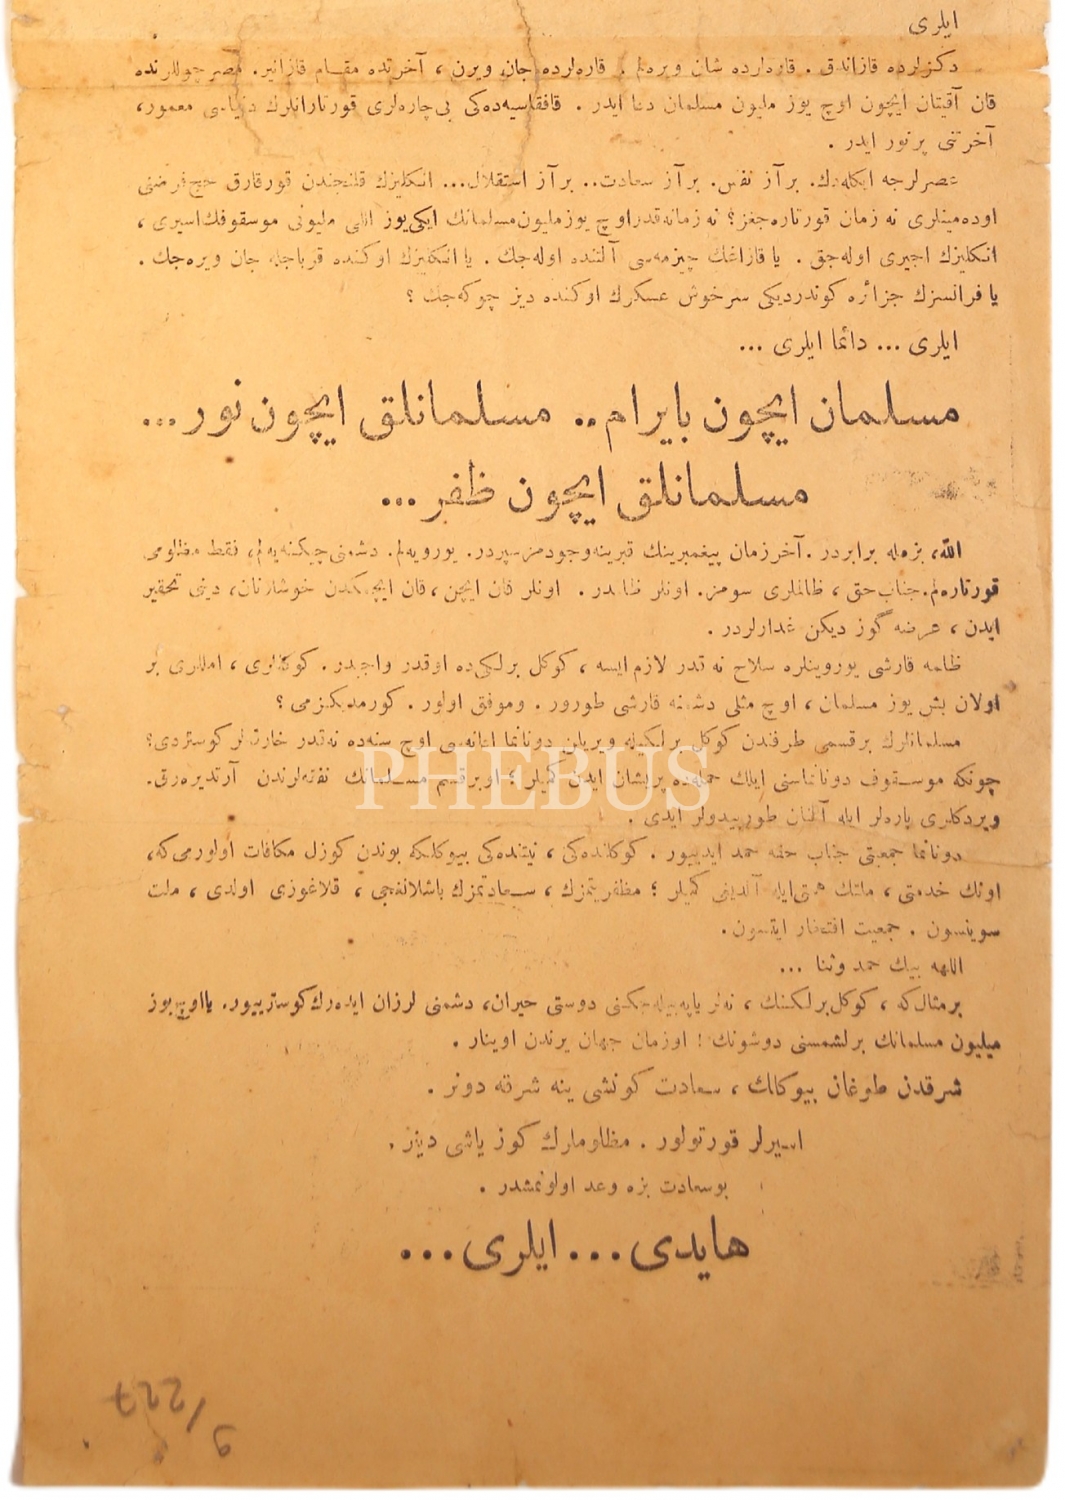 ایلری
دكزلرده قازاندق . قاره‌لرده شان ویره‌لم . قاره‌لرده جان ویرن ، آخرتده مقام قازانیر. مصر چوللرنده
قان آقیتان ایچون اوچ یوز ملیون مسلمان دعا ایدر . قافقاسیه‌ده‌كی بی چاره‌لری قورتارانلرك دنیاسی معمور،
آخرتی پرنور ایدر .
عصرلرجه ایكله‌دك. بر آز نفس. بر آز سعادت.. بر آز استقلال... انكلیزك قلنجندن قورقارق حج فرضنی
اوده‌مینلری نه زمان قورتاره‌جغز؟ نه زمانه قدر اوچ یوز ملیون مسلمانك ایكی یوز اللی ملیونی موسقوفك اسیری ،
انكلیزك اجیری اوله‌جق . یا قازاغك چیزمه‌سی آلتنده اوله‌جك . یا انكلیزك اوكنده قرباجله جان ویره‌جك .
یا فرانسزك جزائره كوندردیكی سرخوش عسكرك اوكنده دیز چوكه‌جك ؟
ایلری ... دائما ایلری ...
مسلمان ایچون بایرام.. مسلمانلق ایچون نور...
مسلمانلق ایچون ظفر...
الله، بزمله برابردر . آخر زمان پیغمبرینك قبرینه وجودمز سپردر. یورویه‌لم. دشمنی چیكنه‌یه‌لم، فقط مظلومی
قورتاره‌لم. جناب حق ، ظالملری سومز. اونلر ظالمدر . اونلر قان ایچن ، قان ایچمكدن خوشلانان، دینی تحقیر
ایدن ، عرضه گوز دیكن غدارلردر .
ظلمه قارشی یورویینلره سلاح نه قدر لازم ایسه ، كوكل برلكی‌ده اوقدر واجبدر . كوكللری ، امللری بر
اولان بش یوز مسلمان ، اوچ مثلی دشمنه قارشی طورور . وموفق اولور . كورمدیكزمی ؟
مسلمانلرك برقسمی طرفندن كوكل برلكیله ویریلن دونانما اعانه‌سی اوچ سنه‌ده نه‌قدر خارقه‌لر كوستردی؟
چونكه موسقوف دونانماسنی ایلك حمله‌ده پریشان ایدن كمیلر ؛ او برقسم مسلمانك نفقه‌لرندن آرتدیره‌رق.
ویردكلری پاره‌لر ایله آلنان طورپیدولر ایدی .
دونانما جمعیتی جناب حقه حمد ایدییور . كوكلنده‌كی ، نیتنده‌كی بیوكلكه بوندن كوزل مكافات اولورمی كه،
اونك خدمتی ، ملتك همتی ایله آلدیغی كمیلر ؛ مظفریتمزك ، سعادتمزك باشلانغجی ، قلاغوزی اولدی ، ملت
سوینسون . جمعیت افتخار ایتسون.
اللهه بیك حمد وثنا ...
بر مثال كه ، كوكل برلكنك ، نه‌لر یاپه‌بیله‌جكنی دوستی حیران، دشمنی لرزان ایده‌رك كوسترییور. یا اوچ یوز
میلیون مسلمانك برلشمسنی دوشونك ! اوزمان جهان یرندن اوینار .
شرقدن طوغان بیوكلك ، سعادت كونشی ینه شرقه دونر .
اسیرلر قورتولور . مظلوملرك كوز یاشی دینر .
بو سعادت بزه وعد اولونمشدر .
هایدی... ایلری...
PHEBUS
9/227